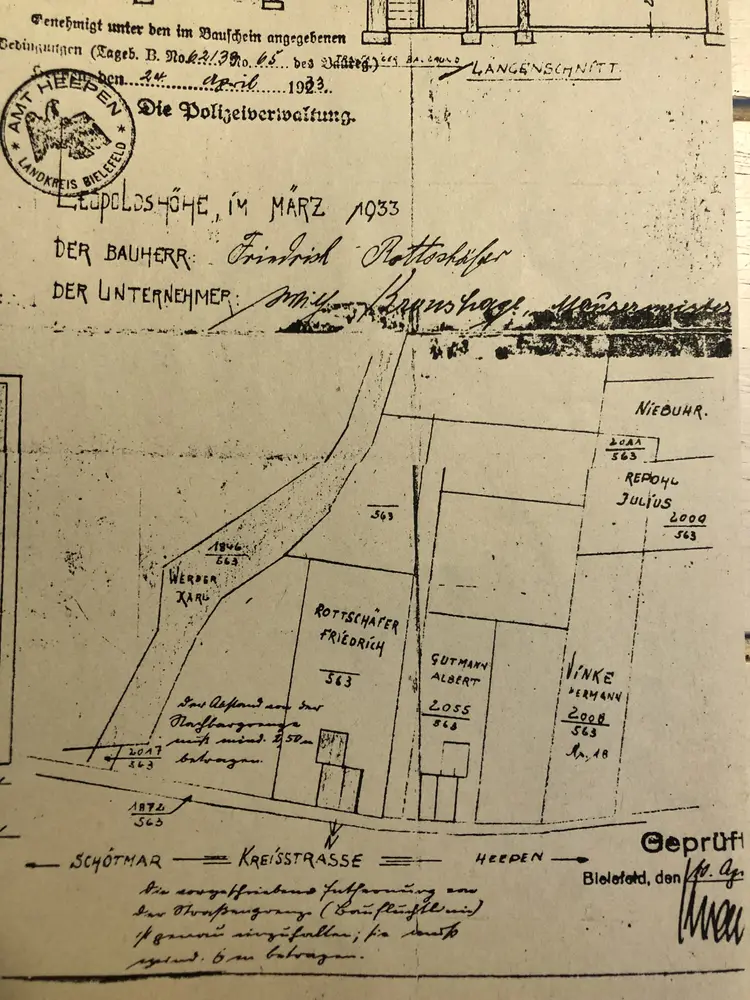 Genehmigt unter den im Bauschein angegebenen
Bedingungen (Tageb. B. No. 62/39 No. 65 des
den 24. April 1933.
Die Polizeiverwaltung.
AMT HEEPEN
LANDKREIS BIELEFELD
LÄNGENSCHNITT.
LEOPOLDSHÖHE, IM MÄRZ 1933
DER BAUHERR: Friedrich Rottschäfer
DER UNTERNEHMER: Wilh. Kranshage, Maurermeister
NIEBUHR.
2011
563
REPOHL
JULIUS
2009
563
563
1846
563
WERDER
KARL
ROTTSCHÄFER
FRIEDRICH
563
GUTMANN
ALBERT
2055
563
VINKE
HERMANN
2008
563
No. 18
Der Abstand von der
Nachbargrenze
muß mind. 2,50 m
betragen.
2017
563
1872
563
N
SCHÖTMAR KREISSTRASSE HEEPEN
Die vorgeschriebene Entfernung von
der Straßengrenze (Baufluchtlinie)
ist genau einzuhalten; sie muß
mind. 6 m betragen.
Geprüft
Bielefeld, den 10. Ap